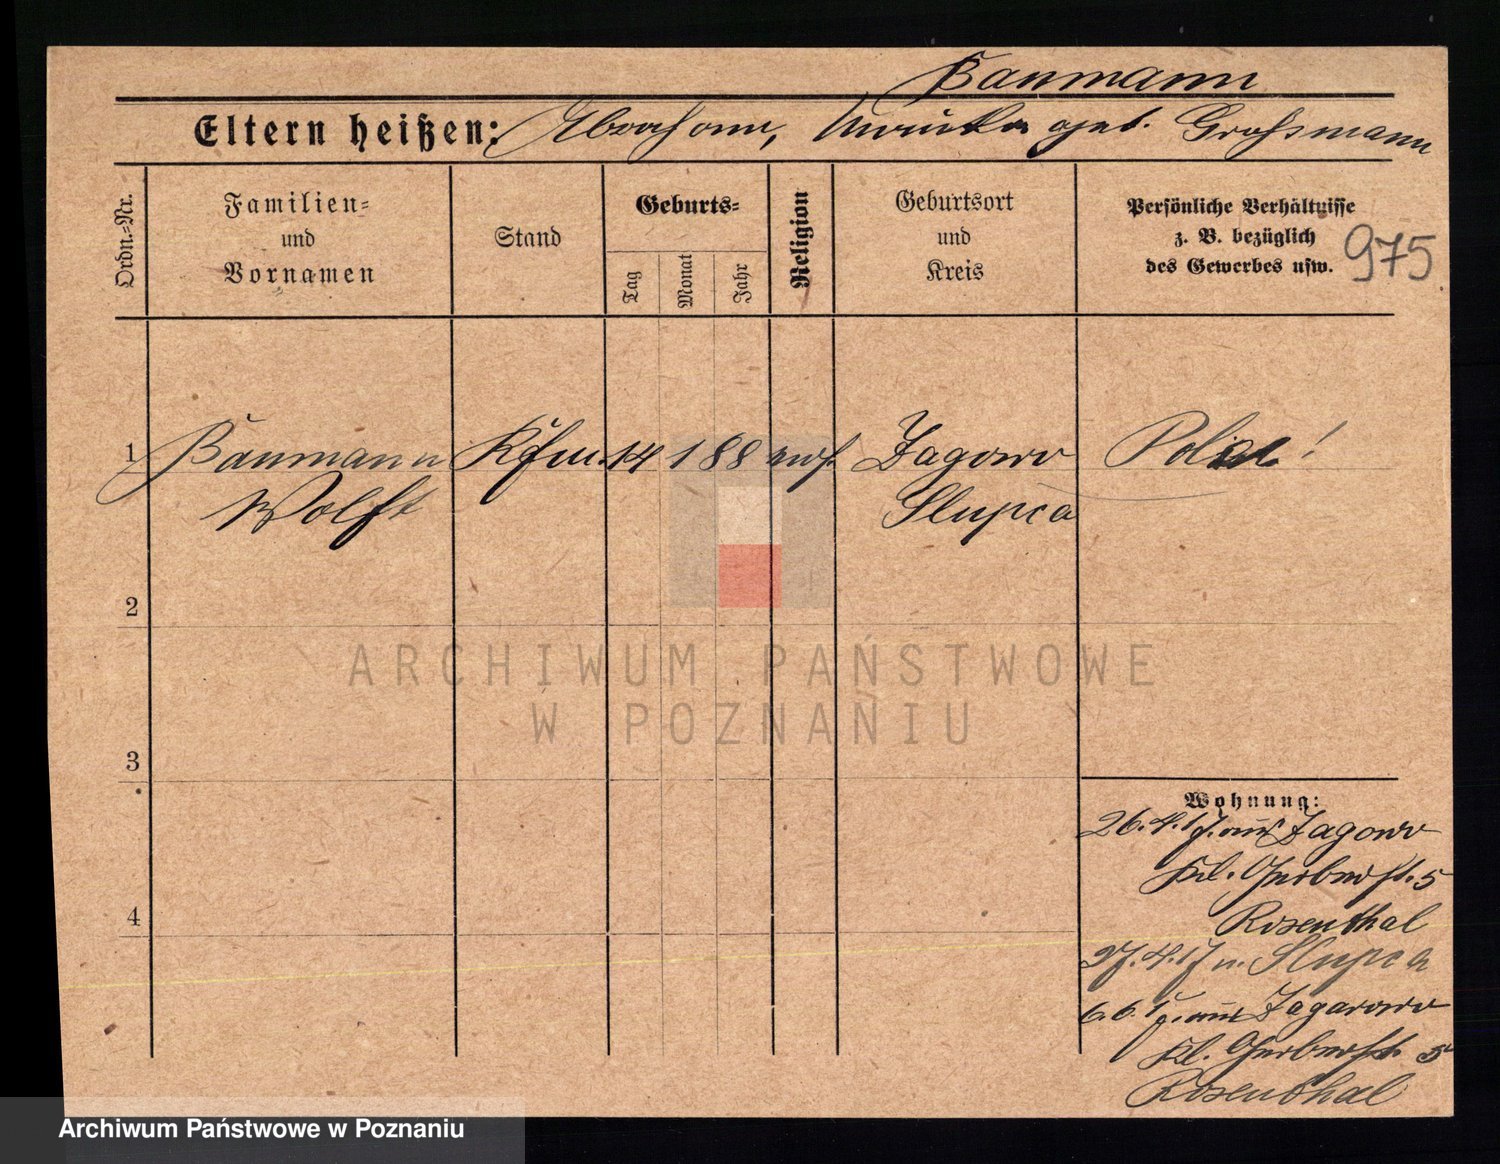 Baumann
Eltern heißen: Abraham, geb. Grossmann
Ordn.=Nr.
Familien=
und
Vornamen
Stand
Geburts=
Tag
Monat
Jahr
Religion
Geburtsort
und
Kreis
Persönliche Verhältnisse
z. B. bezüglich
des Gewerbes usw.
975
1 Baumann Kfm. 14 1 88 mos. Zagorow Pole!
Wolff Slupca
2
3
4
Wohnung:
26.4.17. aus Zagorow
Kl. Gerberst. 5
Rosenthal
27.4.17 n. Slupca
6.6.17. aus Zagorow
Kl. Gerberstr. 5
Rosenthal
ARCHIWUM PAŃSTWOWE
W POZNANIU
Archiwum Państwowe w Poznaniu